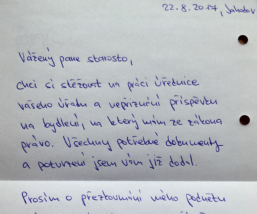 22.8.2017, Jahodov
Vážený pane starosto,
chci si stěžovat na práci úřednice
vašeho úřadu a nepřiznání příspěvku
na bydlení, na který mám ze zákona
právo. Všechny potřebné dokumenty
a potvrzení jsem vám již dodal.
Prosím o přezkoumání mého podnětu